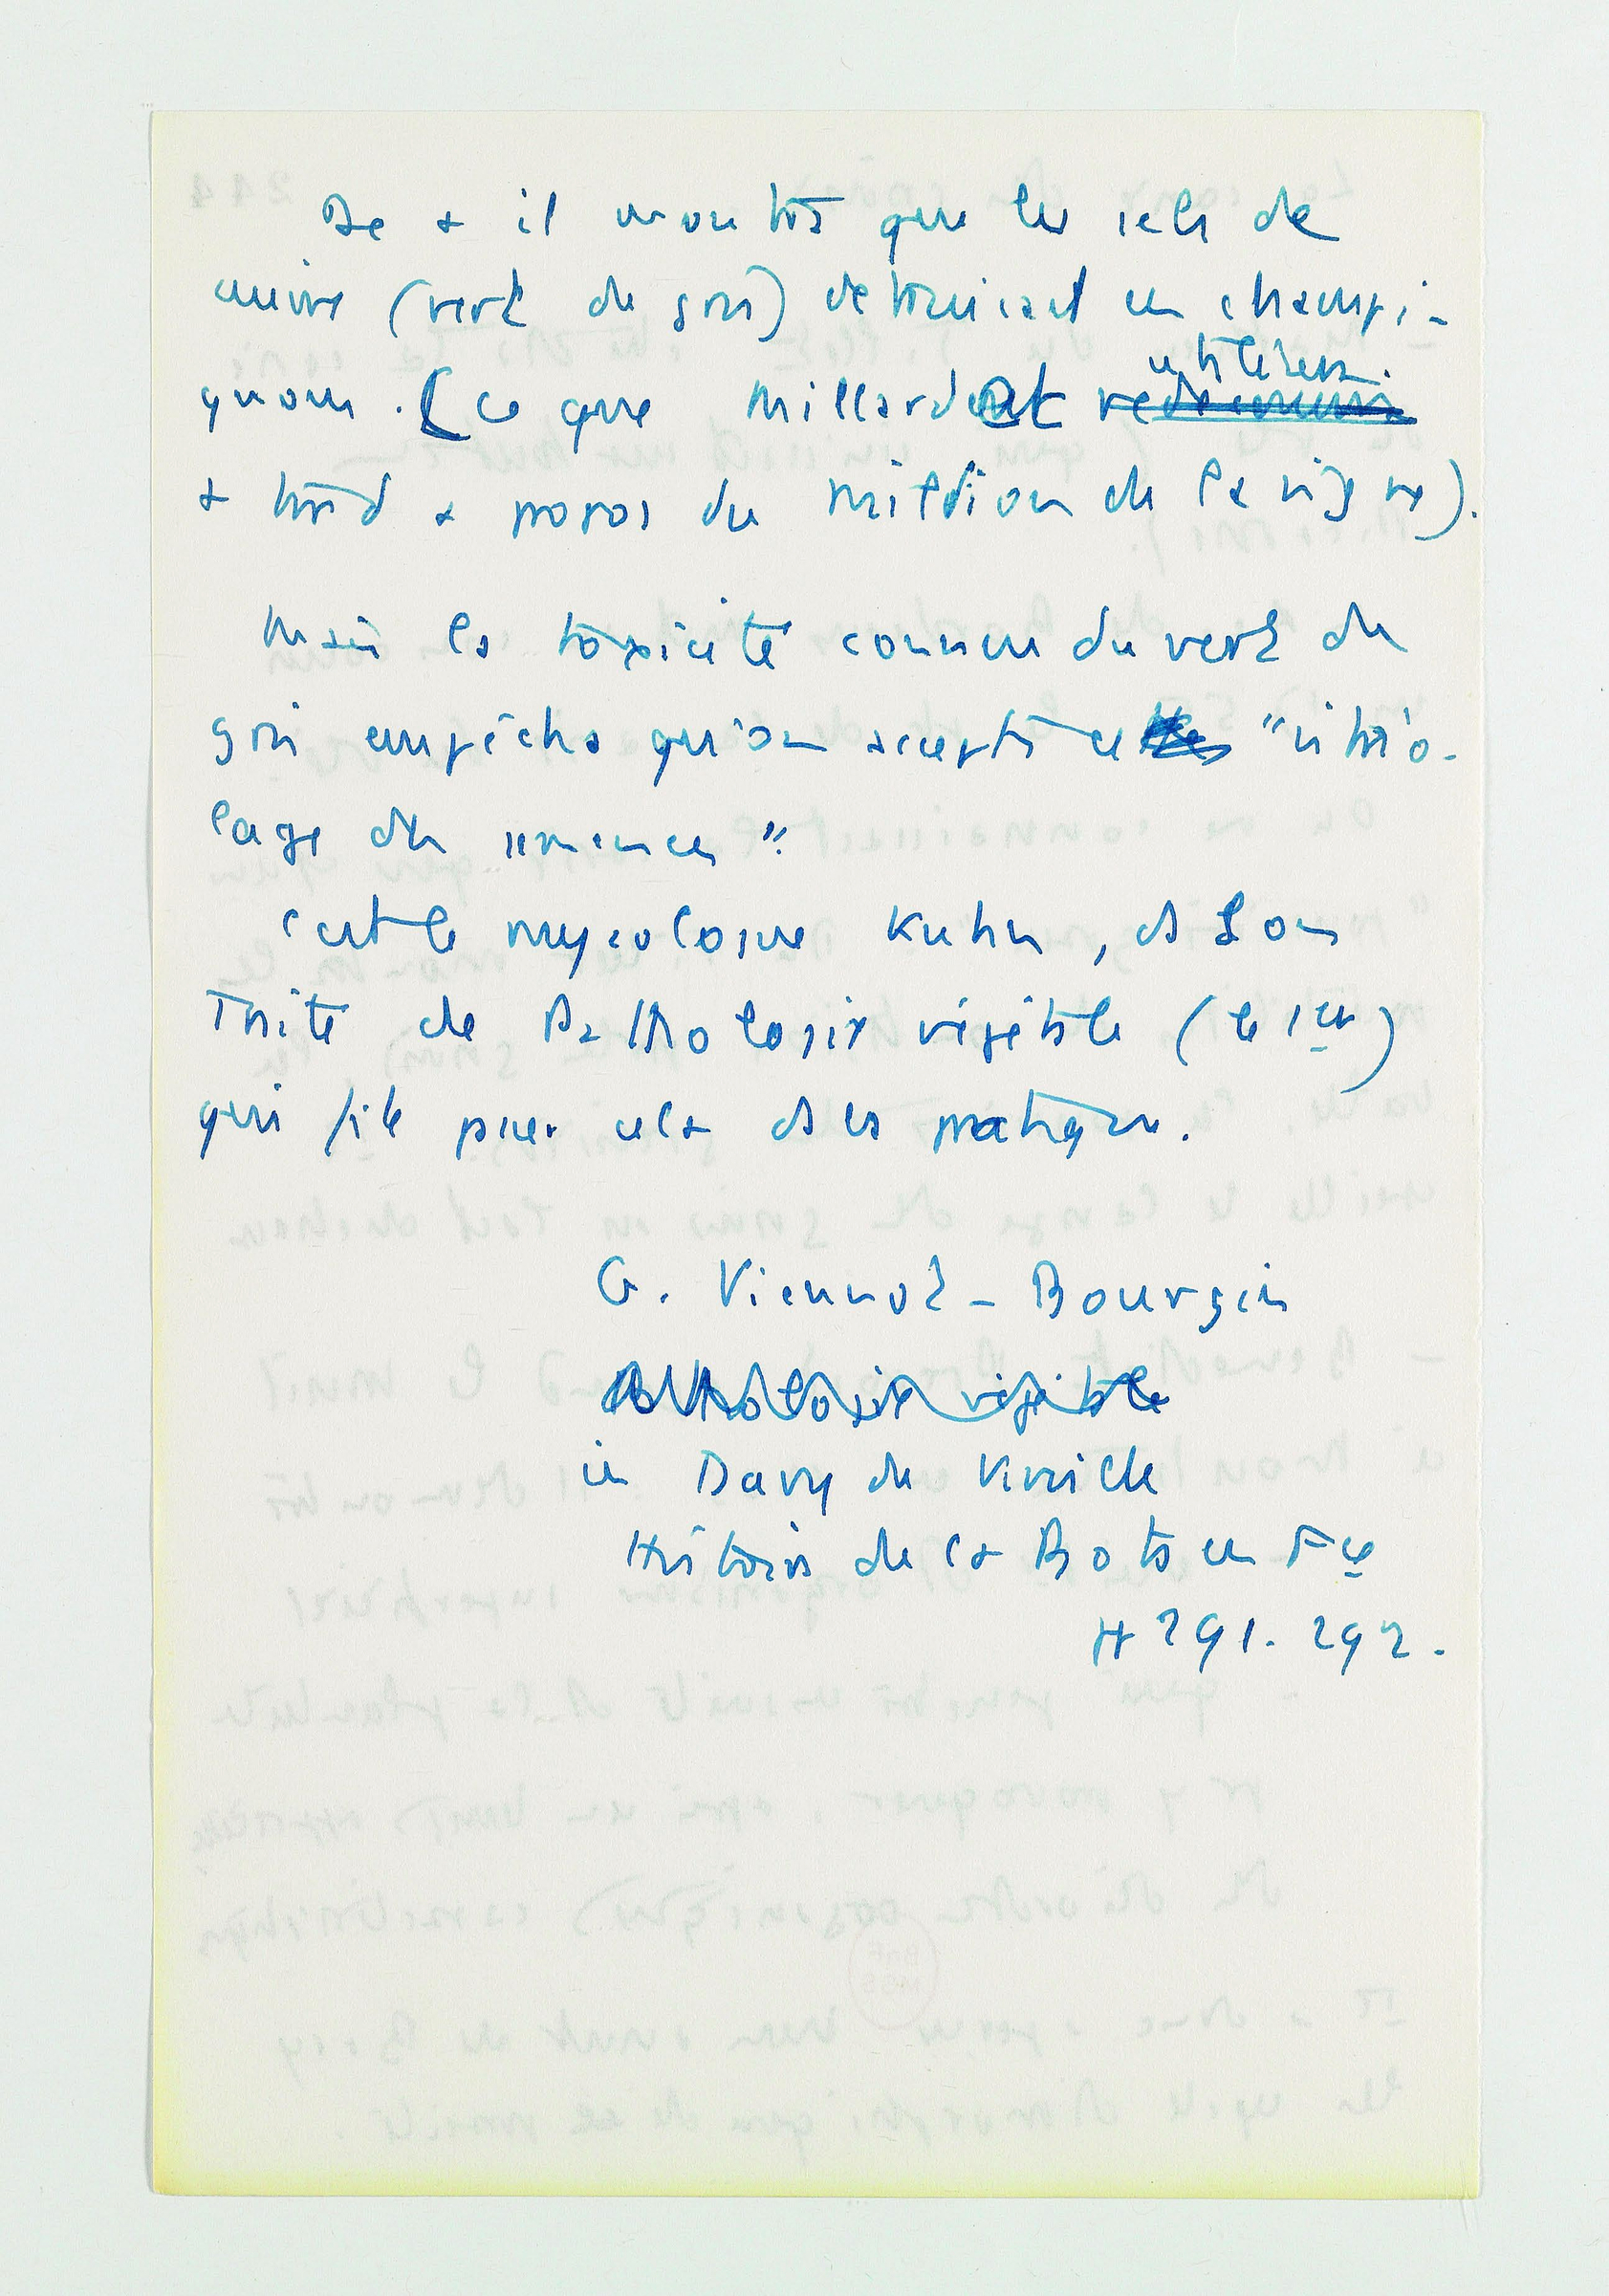 De + il montra que les sels de
cuivre (vert de gris) detruisent ces champi-
gnons. (ce que Millardet utilisera
+ tard a propos du mildiou de la vigne).
Mais la toxicité connue du vert de
gris empêcha qu'on accepta ce "vitrio-
lage des semences".
C'est le mycologue Kuhn, ds son
Traité de Pathologie végétale (le 1er)
qui fit passer cela ds les pratiques.
G. Viennot-Bourgin
Pathologie végétale
in Davy de Virville
Histoire de la Bota en Fce
pp 291. 292.